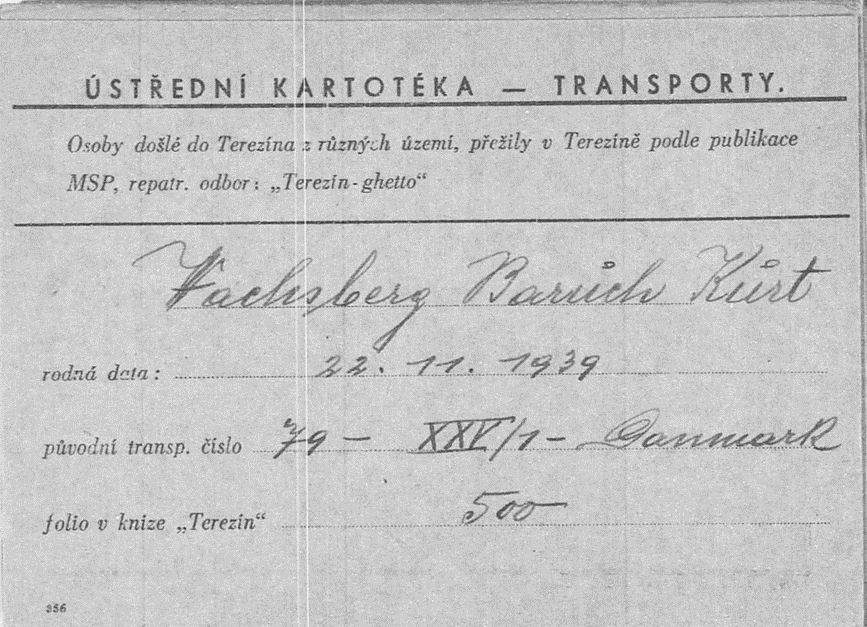 ÚSTŘEDNÍ KARTOTÉKA — TRANSPORTY.
Osoby došlé do Terezína z různých území, přežily v Terezíně podle publikace
MSP, repatr. odbor: „Terezín-ghetto“
Wachsberg Baruch Kurt
rodná data: 22. 11. 1939
původní transp. číslo 79 – XXV/1 – Danmark
folio v knize „Terezín“ 500
356